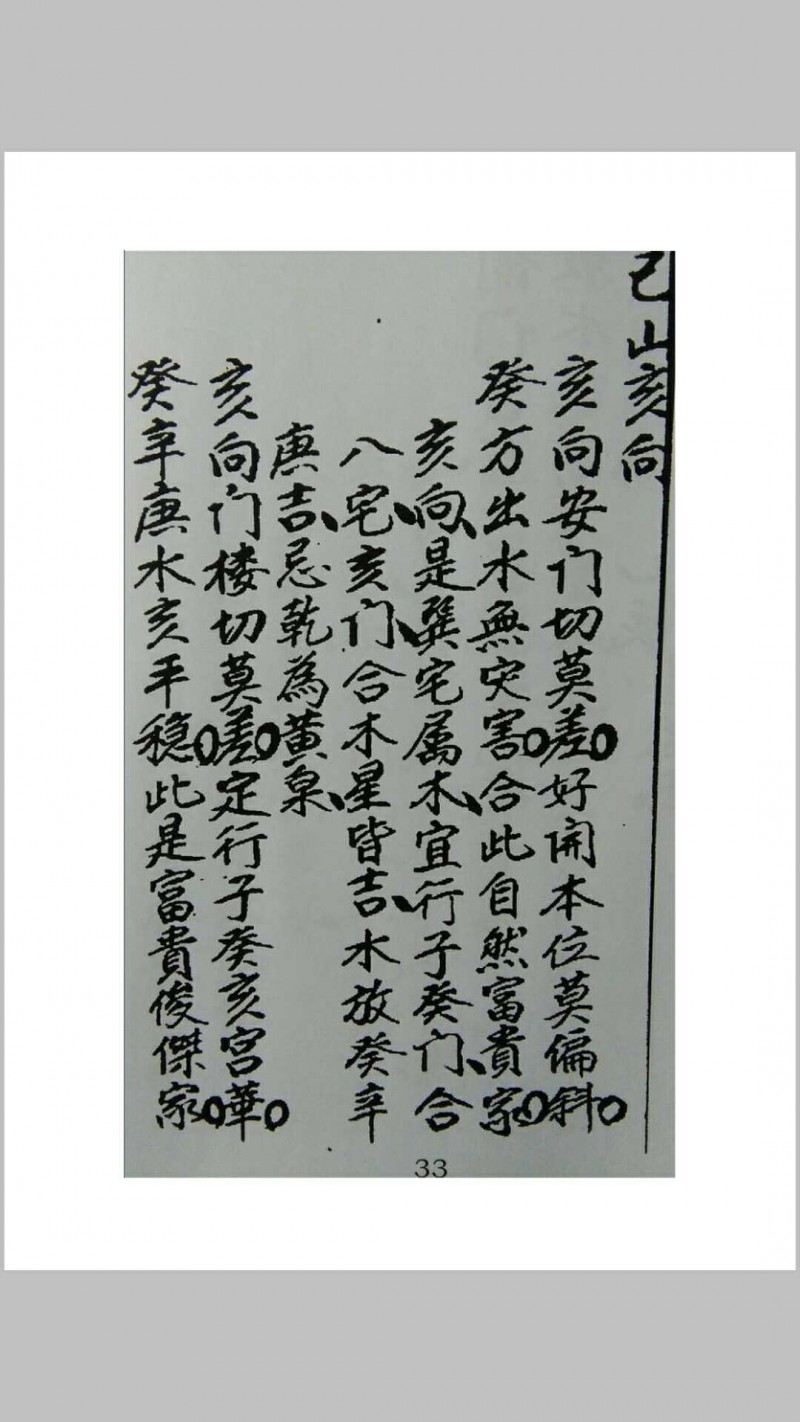 巳山亥向
亥向安门切莫差。好開本位莫偏斜。
癸方出水無灾害。合此自然富貴家。
亥向、是巽宅属木、宜行子癸门、合
八宅、亥门、合木星皆吉、水放癸辛
庚吉、忌乾為黄泉、
亥向门楼切莫差。定行子癸亥宫華。
癸辛庚水亥平穏。此是富貴俊傑家。
33